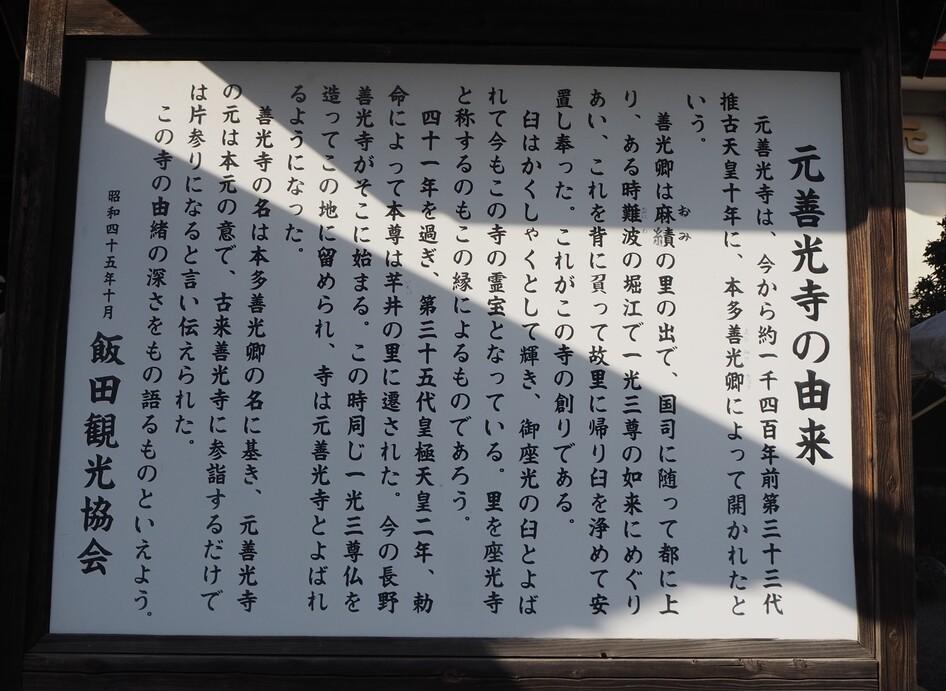 元善光寺の由来
元善光寺は、今から約一千四百年前第三十三代
推古天皇十年に、本多善光卿によって開かれたと
いう。
善光卿は麻績の里の出で、国司に随って都に上
おみ
り、ある時難波の堀江で一光三尊の如来にめぐり
あい、これを背に負って故里に帰り臼を浄めて安
置し奉った。これがこの寺の創りである。
臼はかくしゃくとして輝き、御座光の臼とよば
れて今もこの寺の霊宝となっている。里を座光寺
と称するのもこの縁によるものであろう。
四十一年を過ぎ、第三十五代皇極天皇二年、勅
命によって本尊は芋井の里に遷された。今の長野
善光寺がそこに始まる。この時同じ一光三尊仏を
造ってこの地に留められ、寺は元善光寺とよばれ
るようになった。
善光寺の名は本多善光卿の名に基き、元善光寺
の元は本元の意で、古来善光寺に参詣するだけで
は片参りになると言い伝えられた。
この寺の由緒の深さをもの語るものといえよう。
昭和四十五年十月 飯田観光協会